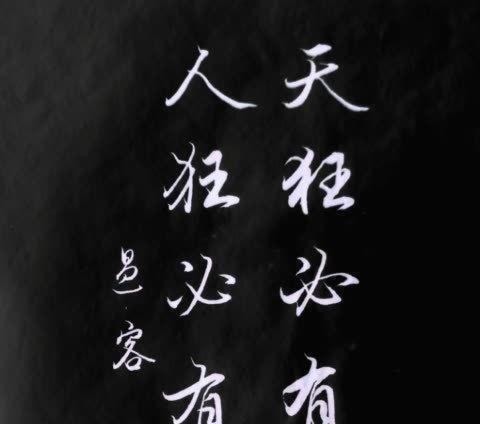 天狂必有
人狂必有